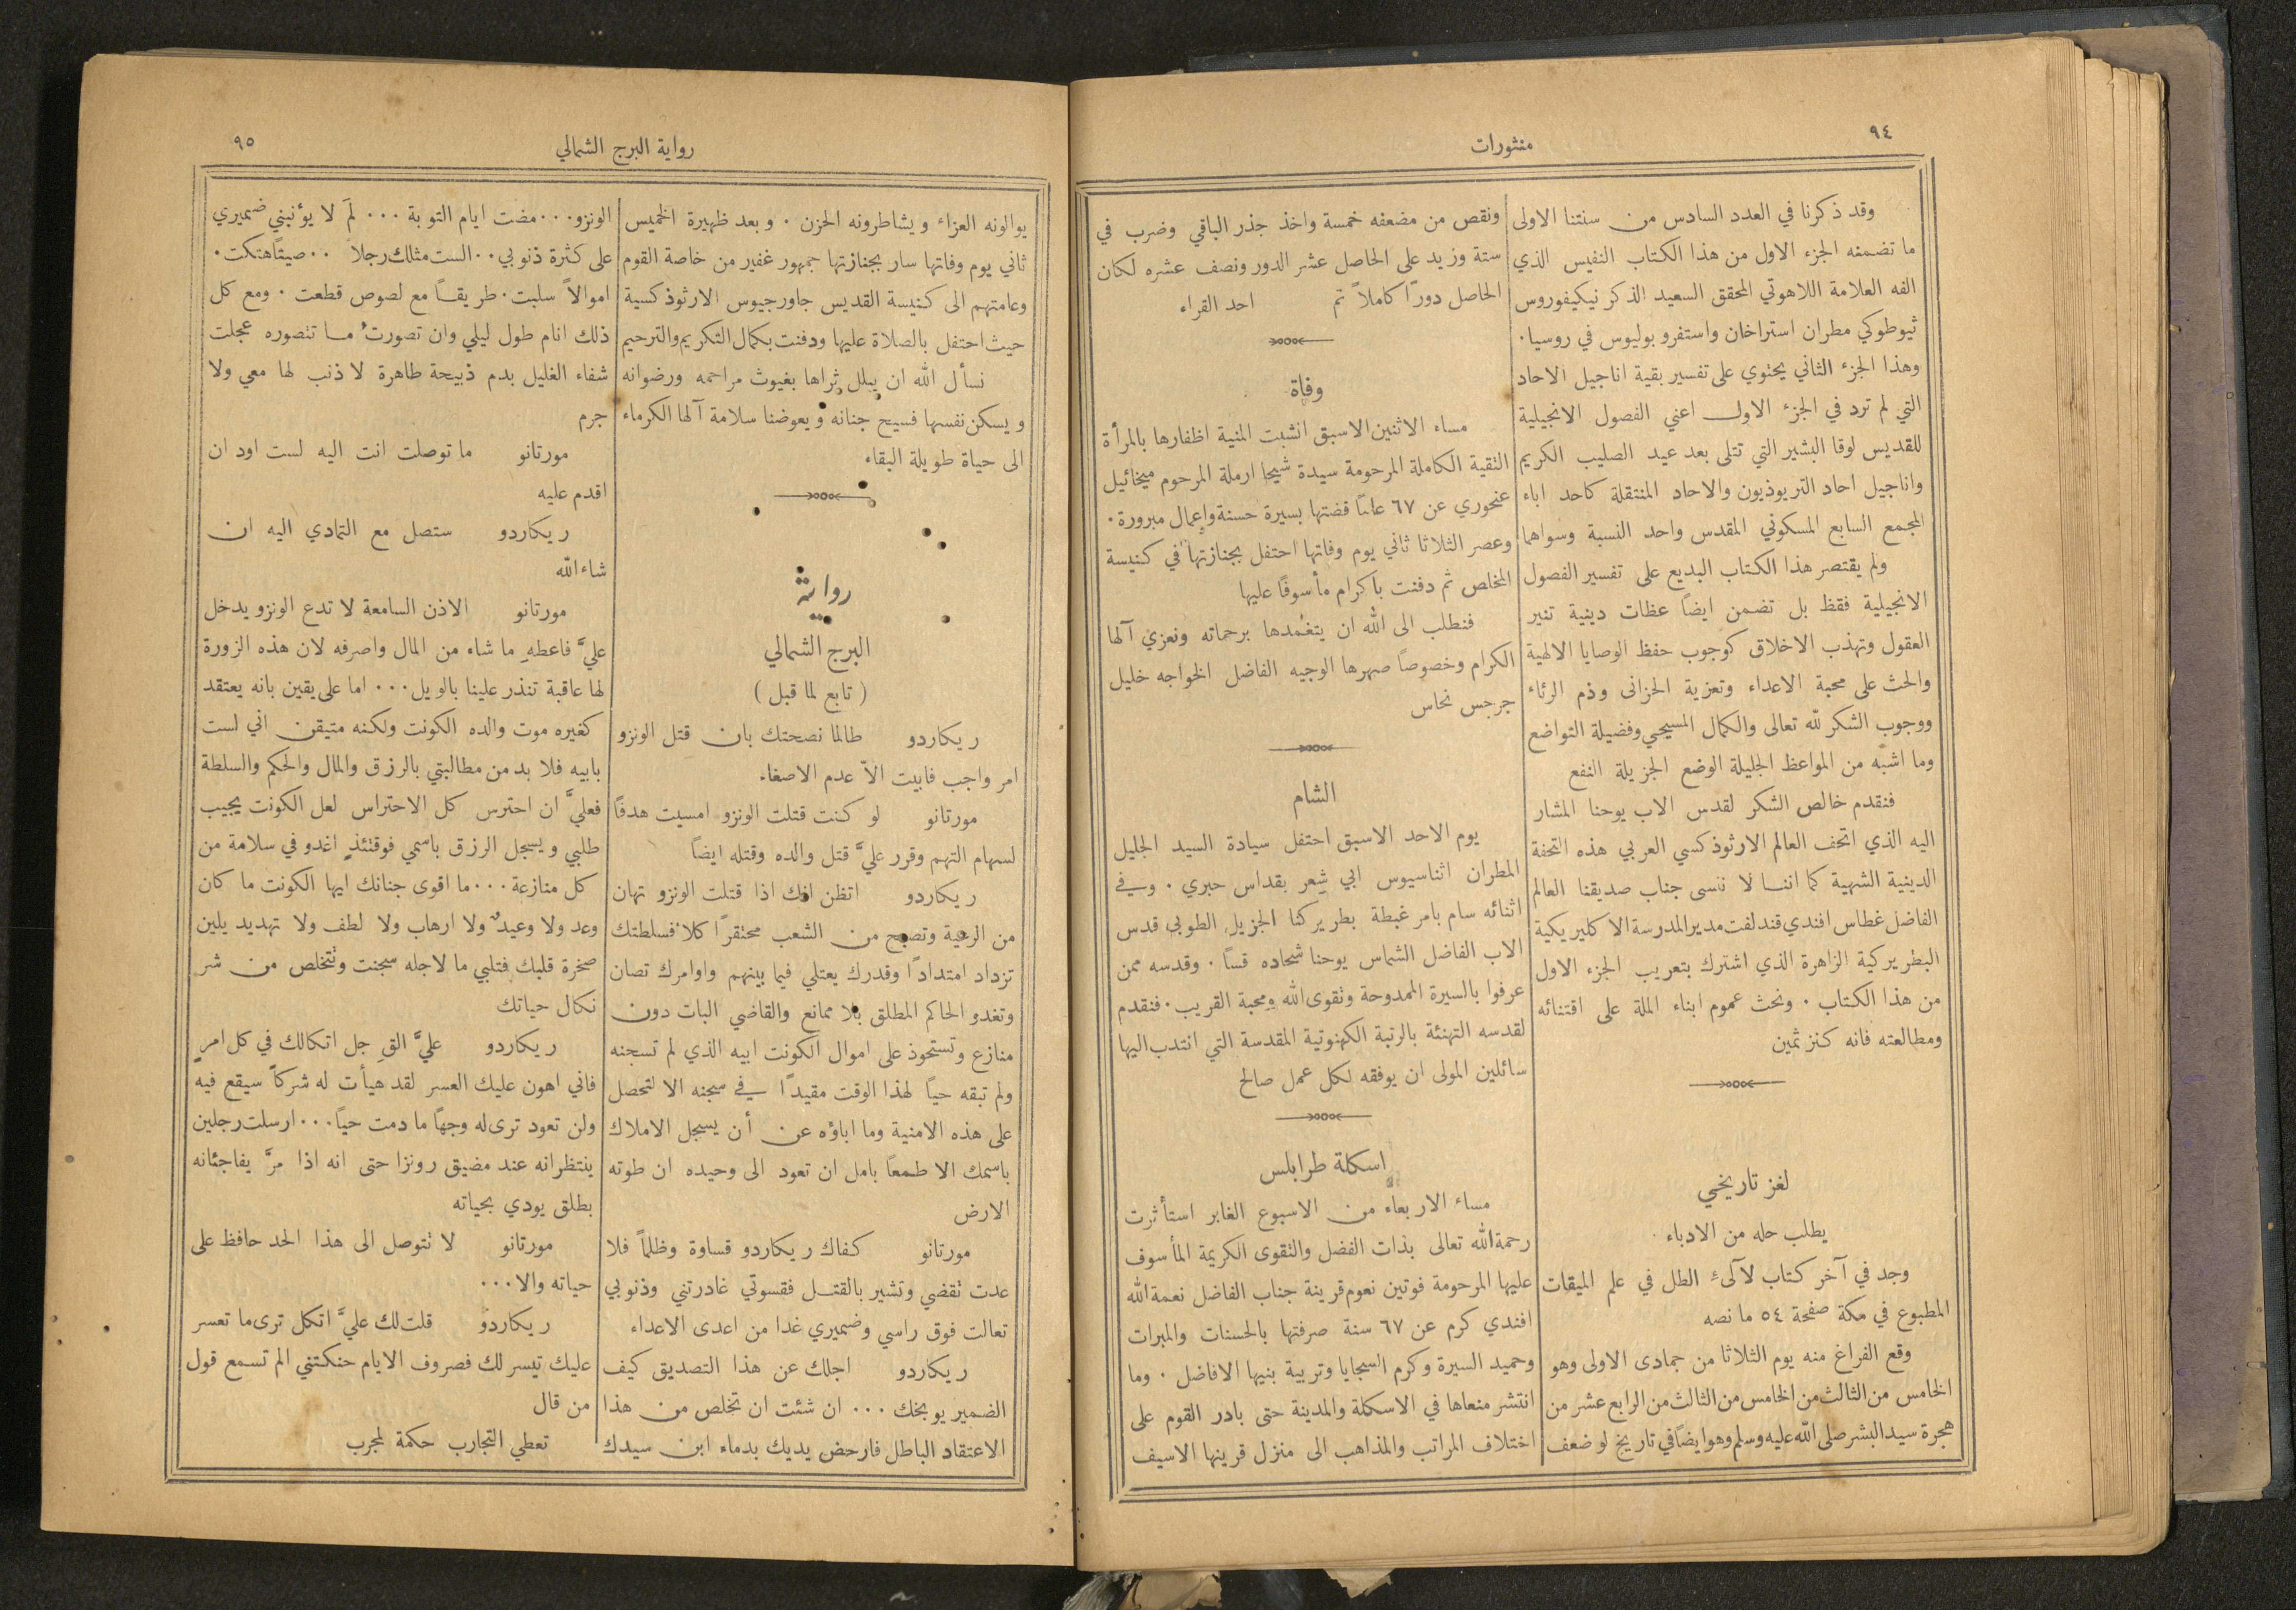 ٩٤
منثورات
وقد ذكرنا في العدد السادس من سنتنا الاولى
ما تضمنه الجزء الاول من هذا الكتاب النفيس الذي
الفه العلامة اللاهوتي المحقق السعيد الذكر نيكيفوروس
ثيوطوكي مطران استراخان واستفروبوليوس في روسيا.
وهذا الجزء الثاني يحتوي على تفسير بقية اناجيل الاحاد
التي لم ترد في الجزء الاول اعني الفصول الانجيلية
للقديس لوقا البشير التي تتلى بعد عيد الصليب الكريم
واناجيل احاد التريوذيون والاحاد المنتقلة كاحد اباء
المجمع السابع المسكوني المقدس واحد النسبة وسواهما
ولم يقتصر هذا الكتاب البديع على تفسير الفصول
الانجيلية فقط بل تضمن ايضاً عظات دينية تنير
العقول وتهذب الاخلاق كوجوب حفظ الوصايا الالهية
والحث على محبة الاعداء وتعزية الحزانى وذم الرئاء
ووجوب الشكر لله تعالى والكمال المسيحي وفضيلة التواضع
وما اشبه من المواعظ الجليلة الوضع الجزيلة النفع
فنقدم خالص الشكر لقدس الاب يوحنا المشار
اليه الذي اتحف العالم الارثوذكسي العربي هذه التحفة
الدينية الشهية كما اننا لا ننسى جناب صديقنا العالم
الفاضل غطاس افندي قندلفت مدير المدرسة الاكليريكية
البطريركية الزاهرة الذي اشترك بتعريب الجزء الاول
من هذا الكتاب . ونحث عموم ابناء الملة على اقتنائه
ومطالعته فانه كنز ثمين
لغز تاريخي
يطلب حله من الادباء
وجد في آخر كتاب لآلىء الطل في علم الميقات
المطبوع في مكة صفحة ٥٤ ما نصه
وقع الفراغ منه يوم الثلاثا من جمادى الاولى وهو
الخامس من الثالث من الخامس من الثالث من الرابع عشر من
هجرة سيد البشر صلى الله عليه وسلم وهو ايضاً في تاريخ لو ضعف
ونقص من مضعفه خمسة واخذ جذر الباقي وضرب في
ستة وزيد على الحاصل عشر الدور ونصف عشره لكان
الحاصل دوراً كاملاً تم احد القراء
وفاة
مساء الاثنين الاسبق انشبت المنية اظفارها بالمرأة
التقية الكاملة المرحومة سيدة شيحا ارملة المرحوم ميخائيل
عنحوري عن ٦٧ عاماً قضتها بسيرة حسنة واعمال مبرورة.
وعصر الثلاثا ثاني يوم وفاتها احتفل بجنازتها في كنيسة
المخلص ثم دفنت باكرام مأسوفاً عليها
فنطلب الى الله ان يتغمدها برحماته ونعزي آلها
الكرام وخصوصاً صهرها الوجيه الفاضل الخواجه خليل
جرجس نحاس
الشام
يوم الاحد الاسبق احتفل سيادة السيد الجليل
المطران اثناسيوس ابي شعر بقداس حبري . وفي
اثنائه سام بامر غبطة بطريركنا الجزيل الطوبى قدس
الاب الفاضل الشماس يوحنا شحاده قساً . وقدسه ممن
عرفوا بالسيرة الممدوحة وتقوى الله ومحبة القريب. فنقدم
لقدسه التهنئة بالرتبة الكهنوتية المقدسة التي انتدب اليها
سائلين المولى ان يوفقه لكل عمل صالح
اسكلة طرابلس
مساء الاربعاء من الاسبوع الغابر استأثرت
رحمة الله تعالى بذات الفضل والتقوى الكريمة المأسوف
عليها المرحومة فوتين نعوم قرينة جناب الفاضل نعمة الله
افندي كرم عن ٦٧ سنة صرفتها بالحسنات والمبرات
وحميد السيرة وكرم السجايا وتربية بنيها الافاضل . وما
انتشر منعاها في الاسكلة والمدينة حتى بادر القوم على
اختلاف المراتب والمذاهب الى منزل قرينها الاسيف
رواية البرج الشمالي
٩٥
يوالونه العزاء ويشاطرونه الحزن . وبعد ظهيرة الخميس
ثاني يوم وفاتها سار بجنازتها جمهور غفير من خاصة القوم
وعامتهم الى كنيسة القديس جاورجيوس الارثوذكسية
حيث احتفل بالصلاة عليها ودفنت بكمال التكريم والترحيم
نسأل الله ان يبلل ثراها بغيوث مراحمه ورضوانه
ويسكن نفسها فسيح جنانه ويعوضنا سلامة آلها الكرماء
الى حياة طويلة البقاء
رواية
البرج الشمالي
( تابع لما قبل )
ريكاردو طالما نصحتك بان قتل الونزو
امر واجب فابيت الاّ عدم الاصغاء
مورتانو لو كنت قتلت الونزو امسيت هدفاً
لسهام التهم وقرر عليَّ قتل والده وقتله ايضاً
ريكاردو اتظن انك اذا قتلت الونزو تهان
من الرعية وتصبح من الشعب محتقراً كلا فسلطتك
تزداد امتداداً وقدرك يعتلي فيما بينهم واوامرك تصان
وتغدو الحاكم المطلق بلا ممانع والقاضي البات دون
منازع وتستحوذ على اموال الكونت ابيه الذي لم تسجنه
ولم تبقه حياً لهذا الوقت مقيداً في سجنه الا لتحصل
على هذه الامنية وما اباؤه عن أن يسجل الاملاك
باسمك الا طمعاً بامل ان تعود الى وحيده ان طوته
الارض
مورتانو كفاك ريكاردو قساوة وظلماً فلا
عدت تقضي وتشير بالقتل فقسوتي غادرتني وذنوبي
تعالت فوق راسي وضميري غدا من اعدى الاعداء
ريكاردو اجلك عن هذا التصديق كيف
الضمير يوبخك ... ان شئت ان تخلص من هذا
الاعتقاد الباطل فارحض يديك بدماء ابن سيدك
الونزو... مضت ايام التوبة ... لمَ لا يؤنبني ضميري
على كثرة ذنوبي.. الست مثلك رجلاً .. صيتاً هتكت.
اموالاً سلبت. طريقاً مع لصوص قطعت . ومع كل
ذلك انام طول ليلي وان تصورت ما تتصوره عجلت
شفاء الغليل بدم ذبيحة طاهرة لا ذنب لها معي ولا
جرم
مورتانو ما توصلت انت اليه لست اود ان
اقدم عليه
ريكاردو ستصل مع التمادي اليه ان
شاء الله
مورتانو الاذن السامعة لا تدع الونزو يدخل
عليَّ فاعطهِ ما شاء من المال واصرفه لان هذه الزورة
لها عاقبة تنذر علينا بالويل... اما على يقين بانه يعتقد
كغيره موت والده الكونت ولكنه متيقن اني لست
بابيه فلا بد من مطالبتي بالرزق والمال والحكم والسلطة
فعليَّ ان احترس كل الاحتراس لعل الكونت يجيب
طلبي ويسجل الرزق باسمي فوقتئذٍ اغدو في سلامة من
كل منازعة... ما اقوى جنانك ايها الكونت ما كان
وعد ولا وعيد ولا ارهاب ولا لطف ولا تهديد يلين
صخرة قلبك فتلبي ما لاجله سجنت وتتخلص من شر
نكال حياتك
ريكاردو عليَّ القِ جل اتكالك في كل امرٍ
فاني اهون عليك العسر لقد هيأت له شركاً سيقع فيه
ولن تعود ترى له وجهاً ما دمت حياً... ارسلت رجلين
ينتظرانه عند مضيق رونزا حتى انه اذا مرَّ يفاجئانه
بطلق يودي بحياته
مورتانو لا تتوصل الى هذا الحد حافظ على
حياته والا...
ريكاردو قلت لك عليَّ اتكل ترى ما تعسر
عليك تيسر لك فصروف الايام حنكتني الم تسمع قول
من قال
تعطي التجارب حكمة لمجرب